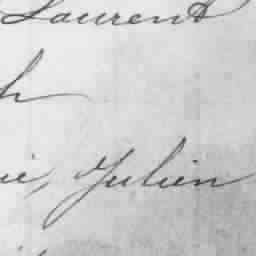 Laurent
h
ie, Julien